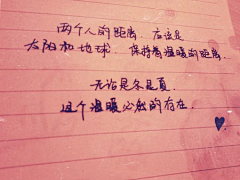 两个人的距离.应该是
太阳和地球.保持着温暖的距离.
无论是冬是夏.
这个温暖必然的存在.